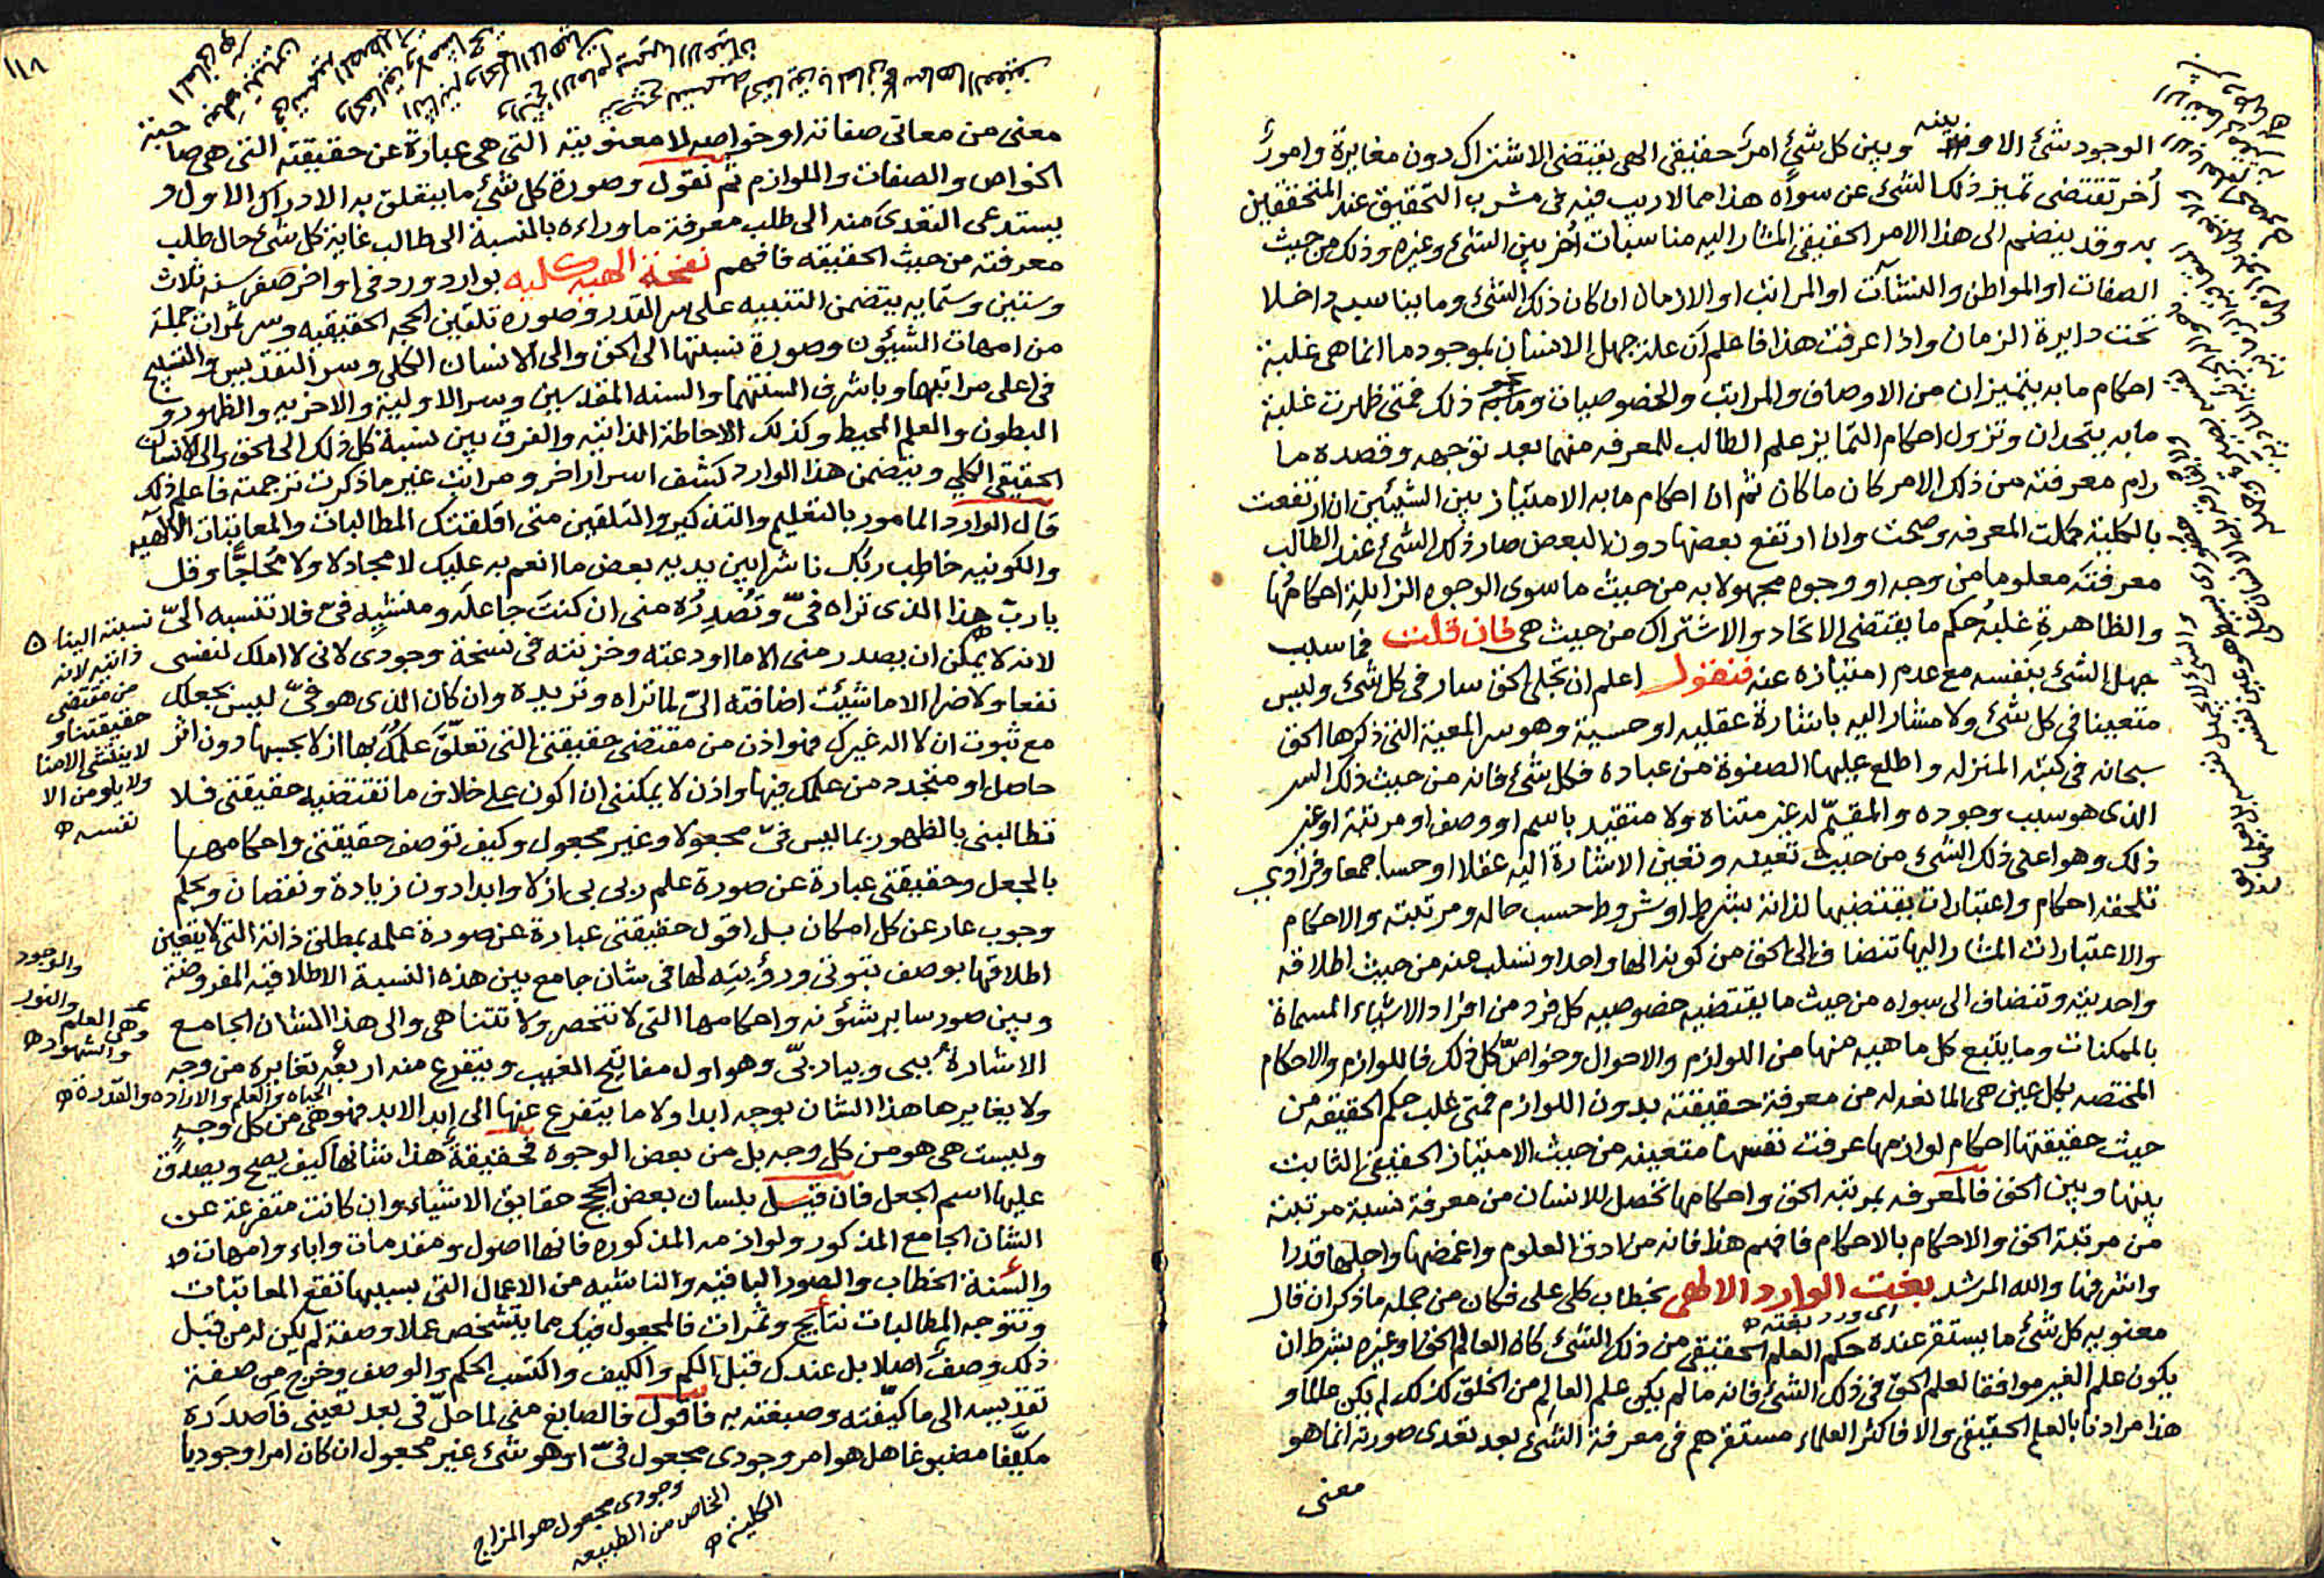 الوجود شئ الا و بينه وبين كل شئ امر حقيقى الهى يقتضى الاشتراك دون مغايرة وامور
أخر تقتضى تميز ذلك الشئ عن سواه هذا مما لاريب فيه فى مشرب التحقيق عند المتحققين
به وقد ينضم الى هذا الامر الحقيقى المشار اليه مناسبات أخر بين الشئ وغيره وذلك من حيث
الصفات او المواطن والنشآت او المراتب او الازمان ان كان ذلك الشئ وما يناسبه داخلا
تحت دايرة الزمان واذا عرفت هذا فاعلم أن علة جهل الانسان بموجود ما انما هى غلبة
احكام ما به يتميزان من الاوصاف والمراتب والخصوصيات ونحو ذلك فمتى ظهرت غلبة
ما به يتحدان وتزول احكام التمايز علم الطالب للمعرفه منهما بعد توجهه وقصده ما
رام معرفته من ذلك الامر كان ما كان ثم ان احكام ما به الامتياز بين الشيئين ان ارتفعت
بالكلية كملت المعرفه وصحت وان ارتفع بعضها دون البعض صار ذلك الشئ عند الطالب
معرفته معلوما من وجه او وجوه مجهولا به من حيث ما سوى الوجوه الزايلة احكامها
والظاهرة غلبة حكم ما يقتضى الاتحاد والاشتراك من حيث هى فان قلت فما سبب
جهل الشئ بنفسه مع عدم امتيازه عنه فنقول اعلم ان تجلى الحق سار فى كل شئ وليس
متعينا فى كل شئ ولا مشار اليه باشارة عقليه او حسية وهو سر المعية التى ذكرها الحق
سبحانه فى كتبه المنزله واطلع عليها الصفوة من عباده فكل شئ فانه من حيث ذلك السر
الذى هو سبب وجوده والمقيم له غير متناه ولا متقيد باسم او وصف او مرتبة او غير
ذلك وهو اعلى ذلك الشئ من حيث تعينه وتعين الاشارة اليه عقلا او حسا جمعا وفرادى
تلحقه احكام واعتبارات يقتضيها لذاته بشرط او شروط حسب حاله ومرتبته والاحكام
والاعتبارات المشار اليها تنضاف الى الحق من كونه الها واحدا وتسلب عنه من حيث اطلاقه
واحديته وتنضاف الى سواه من حيث ما يقتضيه خصوصيه كل فرد من افراد الاشياء المسماة
بالممكنات وما يتبع كل ماهيه منها من اللوازم والاحوال وخواص كل ذلك فاللوازم والاحكام
المختصه بكل عين هى المانعه له من معرفة حقيقته بدون اللوازم فمتى غلب حكم الحقيقه من
حيث حقيقتها احكام لوازمها عرفت نفسها متعينه من حيث الامتياز الحقيقى الثابت
بينها وبين الحق فالمعرفه بمرتبه الحق واحكامها تحصل للانسان من معرفة نسبة مرتبته
من مرتبة الحق والاحكام بالاحكام فافهم هذا فانه من ادق العلوم واغمضها واجلها قدرا
واشرفها والله المرشد بغت الوارد الالهى بخطاب كلى على فكان من جمله ما ذكر ان قال
اى ورد بغته
معنويه كل شئ ما يستقر عنده حكم العلم الحقيقى من ذلك الشئ كان العالم الحق او غيره بشرط ان
يكون علم الغير موافقا لعلم الحق فى ذلك الشئ فانه ما لم يكن علم العالم من الخلق كذلك لم يكن علما و
هذا مرادنا بالعلم الحقيقى والا فاكثر العلماء مستقرهم فى معرفة الشئ بعد تعدى صورته انما هو
معنى
١١٨
معنى من معانى صفاته او خواصه لا معنويته التى هى عبارة عن حقيقته التى هى صاحبة
الخواص والصفات واللوازم ثم نقول وصورة كل شئ ما يتعلق به الادراك الاول و
يستدعى التعدى منه الى طلب معرفة ما وراءه بالنسبة الى طالب غاية كل شئ حال طلب
معرفته من حيث الحقيقه فافهم نفحة الهيه كليه بوارد ورد فى اواخر صفر سنه ثلاث
وستين وستمايه يتضمن التنبيه على سر القدر وصورة تلقين الحجه الحقيقيه وسر ثمرات جملة
من امهات الشيؤن وصورة نسبتها الى الحق والى الانسان الكلى وسر التقديس والتسبيح
فى اعلى مراتبها وباشرف السنتهما والسنه المقدسين وسر الاولية والاخريه والظهور و
البطون والعلم المحيط وكذلك الاحاطة الذاتيه والفرق بين نسبة كل ذلك الى الحق والى الانسان
الحقيقى الكلي ويتضمن هذا الوارد كشف اسرار اخر ومراتب غير ما ذكرت ترجمته فاعلم ذلك
قال الوارد المامور بالتعليم والتذكير والتلقين متى اقلقتك المطالبات والمعاتبات الآلهيه
والكونيه خاطب ربك ناشرا بين يديه بعض ما انعم به عليك لا مجادلا ولا محاجا وقل
يا رب هذا الذى تراه فىّ وتصدره منى ان كنت جاعله ومنشيه فىّ فلا تنسبه الىّ
لانه لا يمكن ان يصدر منى الا ما اودعته وخزنته فى نسخة وجودى لانى لا املك لنفسى
نفعا ولا ضرا الا ما شئت اضافته الىّ لما تراه وتريده وان كان الذى هو فىّ ليس بجعلك
مع ثبوت ان لا اله غيرك فهو اذن من مقتضى حقيقتى التى تعلق علمك بها ازلا بحسبها دون اثر
حاصل او متجدد من علمك فيها واذن لا يمكننى ان اكون على خلاف ما تقتضيه حقيقتى فلا
تطالبنى بالظهور بما ليس فىّ مجعولا وغير مجعول وكيف توصف حقيقتى واحكامها
بالجعل وحقيقتى عبارة عن صورة علم ربى بى ازلا وابدا دون زيادة ونقصان وبحكم
وجوب عار عن كل امكان بل اقول حقيقتى عبارة عن صورة علمه بمطلق ذاته التى لا يتعين
اطلاقها بوصف ثبوتى ورؤيته لها فى شان جامع بين هذه النسبة الاطلاقيه المفروضة
وبين صور ساير شئونه واحكامها التى لا تنحصر ولا تتناهى والى هذا الشان الجامع
الاشارة ببى وبيا ربى وهو اول مفاتيح الغيب ويتفرع منه اربعه تغايره من وجه
ولا يغايرها هذا الشان بوجه ابدا ولا ما يتفرع عنها الى ابد الابد فهو هى من كل وجه
وليست هى هو من كل وجه بل من بعض الوجوه فحقيقة هذا شانها كيف يصح ويصدق
عليها اسم الجعل فان قيل بلسان بعض الحجج حقايق الاشياء وان كانت متفرعة عن
الشان الجامع المذكور ولوازمه المذكوره فانها اصول ومقدمات واباء وامهات
والسنة الخطاب والصور الباقيه والناشيه من الاعمال التى بسببها تقع المعاتبات
وتتوجه المطالبات نتايج وثمرات فالمجعول فيك مما يتشخص عملا وصفة لم يكن له من قبل
ذلك وصف اصلا بل عندك قبل الكم والكيف واكتسب الحكم والوصف وخرج من صفة
تقديسه الى ما كيفته وصبغته به فاقول فالصابغ منى لما حل فى بعد تعينى فاصدره
مكيفا مصبوغا هل هو امر وجودى مجعول فىّ او هو شئ غير مجعول ان كان امرا وجوديا
نسبته الينا
ذاتيه لانه
من مقتضى
حقيقتنا و
لا ينتشى الا منا
ولا يلومن الا
نفسه
والوجود
والنور
وهى العلم
والشهود
الحياه والعلم والاراده والقدرة
وجودى مجعول هو المزاج
الخاص من الطبيعه
الكلية